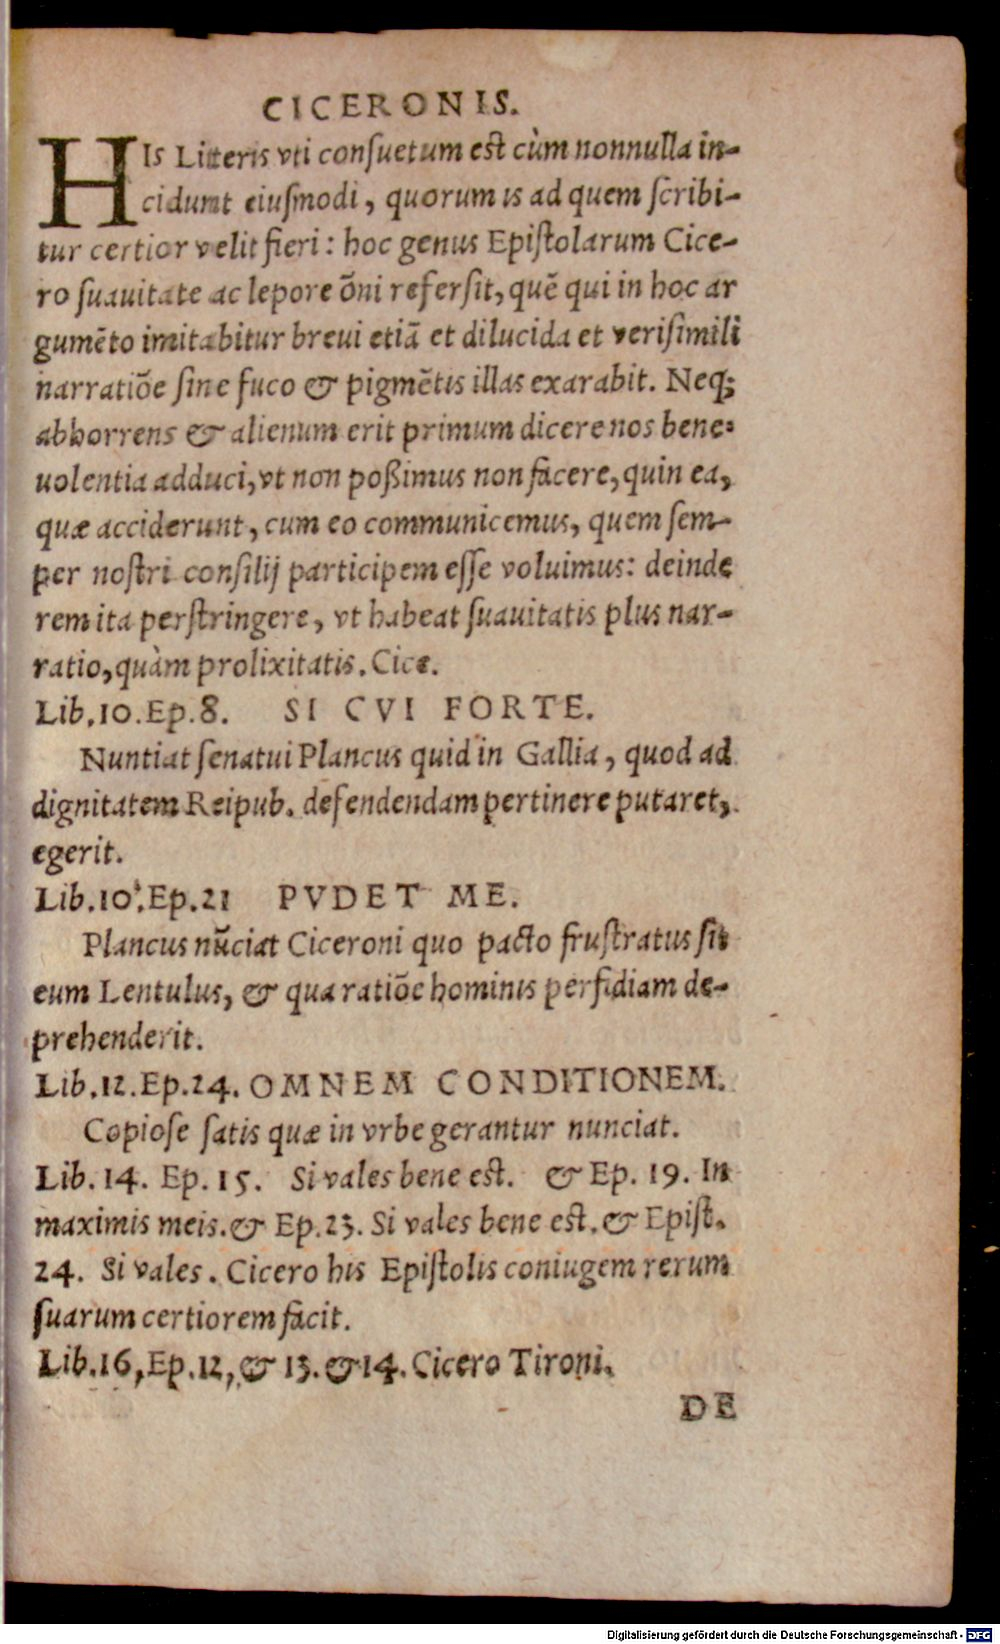 CICERONIS.
HIs Litteris vti consuetum est cùm nonnulla in-
cidunt eiusmodi, quorum is ad quem scribi-
tur certior velit fieri: hoc genus Epistolarum Cice-
ro suauitate ac lepore õni refersit, quẽ qui in hoc ar
gumẽto imitabitur breui etiã et dilucida et verisimili
narratiõe sine fuco & pigmẽtis illas exarabit. Neq;
abhorrens & alienum erit primum dicere nos bene-
uolentia adduci, vt non poßimus non facere, quin ea,
quæ acciderunt, cum eo communicemus, quem sem-
per nostri consilij participem esse voluimus: deinde
rem ita perstringere, vt habeat suauitatis plus nar-
ratio, quàm prolixitatis. Cice.
Lib.10.Ep.8. SI CVI FORTE.
Nuntiat senatui Plancus quid in Gallia, quod ad
dignitatem Reipub. defendendam pertinere putaret,
egerit.
Lib.10.Ep.21 PVDET ME.
Plancus nũciat Ciceroni quo pacto frustratus sit
eum Lentulus, & qua ratiõe hominis perfidiam de-
prehenderit.
Lib.12.Ep.24. OMNEM CONDITIONEM.
Copiose satis quæ in vrbe gerantur nunciat.
Lib. 14. Ep. 15. Si vales bene est. & Ep. 19. In
maximis meis. & Ep.23. Si vales bene est. & Epist.
24. Si vales. Cicero his Epistolis coniugem rerum
suarum certiorem facit.
Lib.16, Ep.12, & 13. & 14. Cicero Tironi.
DE
Digitalisierung gefördert durch die Deutsche Forschungsgemeinschaft - DFG